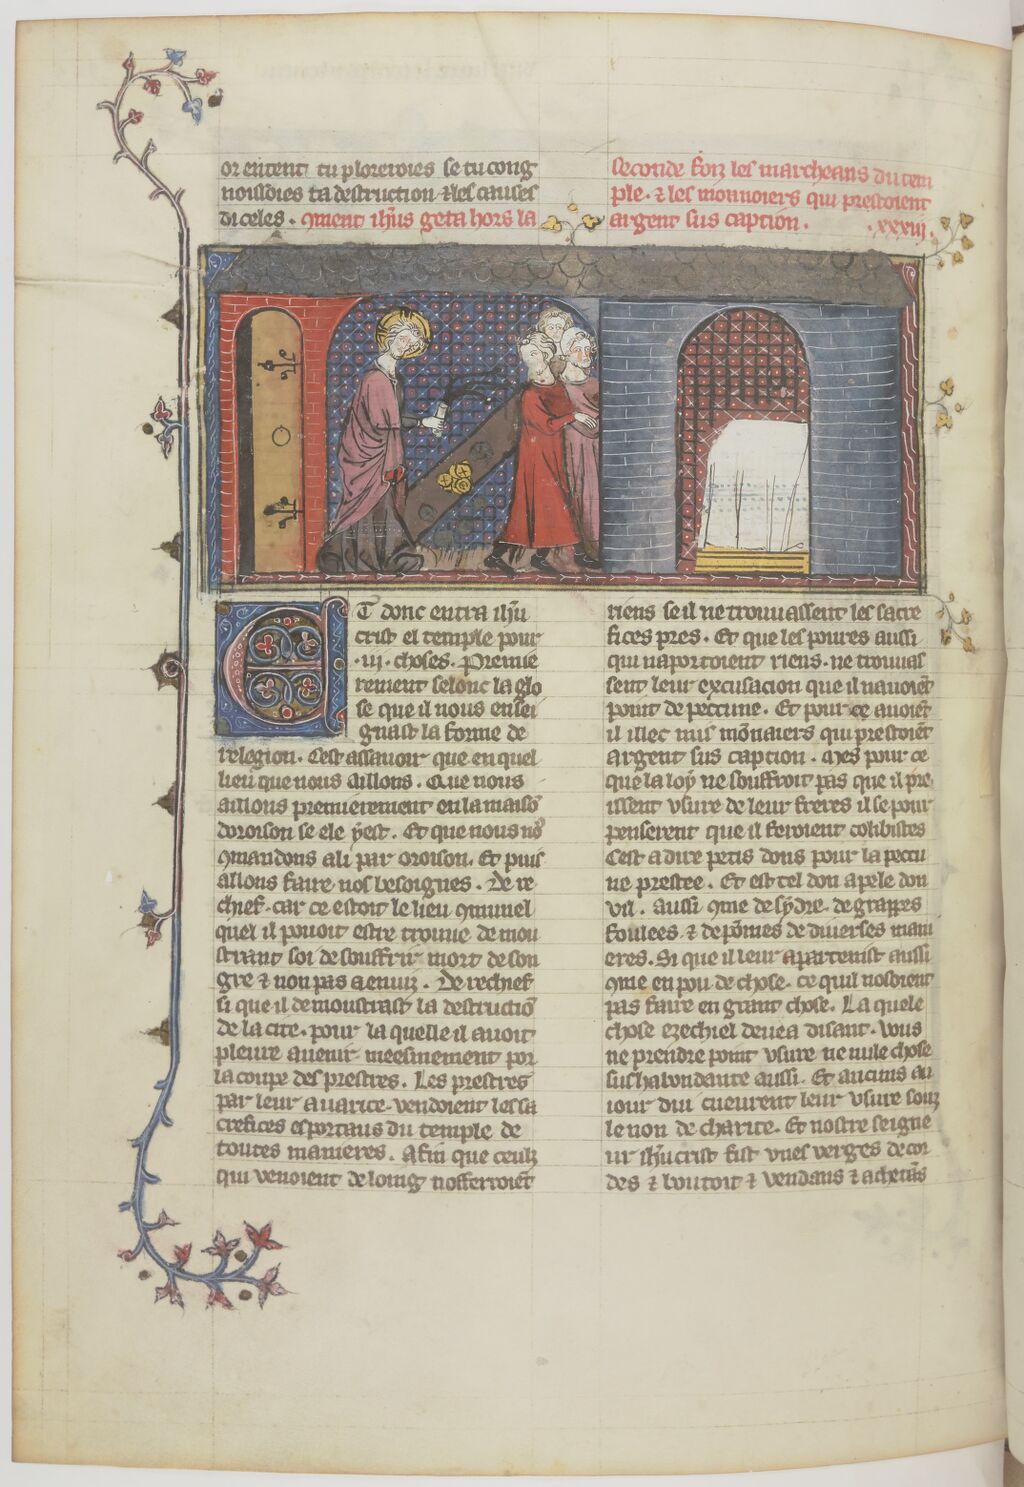 or entent tu ploreroies se tu cong
noissoies ta destruction & les causes
diceles. Qment ihus geta hors la
seconde foiz les marcheans du tem
ple. & les monnoiers qui prestoient
argent sus caption. .xxxiij.
ET donc entra ihu
crist el temple pour
.iii. choses. Premie
rement selonc la glo
se que il nous ensei
gnast la forme de
relegion. Cest assauoir que en quel
lieu que nous aillons. Que nous
aillons premierement en la maisõ
doroison se ele ÿ est. Et que nous nº
9mandons a li par oroison. Et puis
allons faire nos besoignes. De re
chief. car ce estoit le lieu 9munel
quel il pouoit estre trouue demou
strant soi de souffrir mort de son
gre & non pas a enuiz. De rechief
si que il demoustrast la destructiõ
de la cite. pour la quelle il auoit
pleure auenir meesmement por
la coupe des prestres. Les prestres
par leur auarice. vendoient les sa
crefices es portaus du temple de
toutes manieres. Afin que ceulz
qui venoient de loing noffrroiẽt
riens se il ne trouuassent les sacre
fices pres. Et que les poures aussi
qui naportoient riens. ne trouuas
sent leur excusacion que il nauoiẽt
point de peccune. Et pour ce auoiẽt
il illec mis mõnaiers qui prestoiẽt
argent sus caption. Mes pour ce
que la loÿ ne souffroit pas que il pre
issent vsure de leur freres il se pour
penserent que il feroient colibistes
Cest a dire petis dons pour la peccu
ne prestee. Et est tel don apele don
vil. aussi 9me de sÿdre. de grappes
foulees. & de põmes de diuerses mani
eres. Si que il leur apartenist aussi
9me en pou de chose. ce quil nosoient
pas faire en grant chose. La quele
chose ezechiel deuea disant. Vous
ne prendre point vsure ne nule chose
sushabondante aussi. Et aucuns au
iour dui cueurent leur vsure souz
le non de charite. Et nostre seigne
ur ihucrist fist vnes verges de cor
des & boutoit & vendans & achetãs